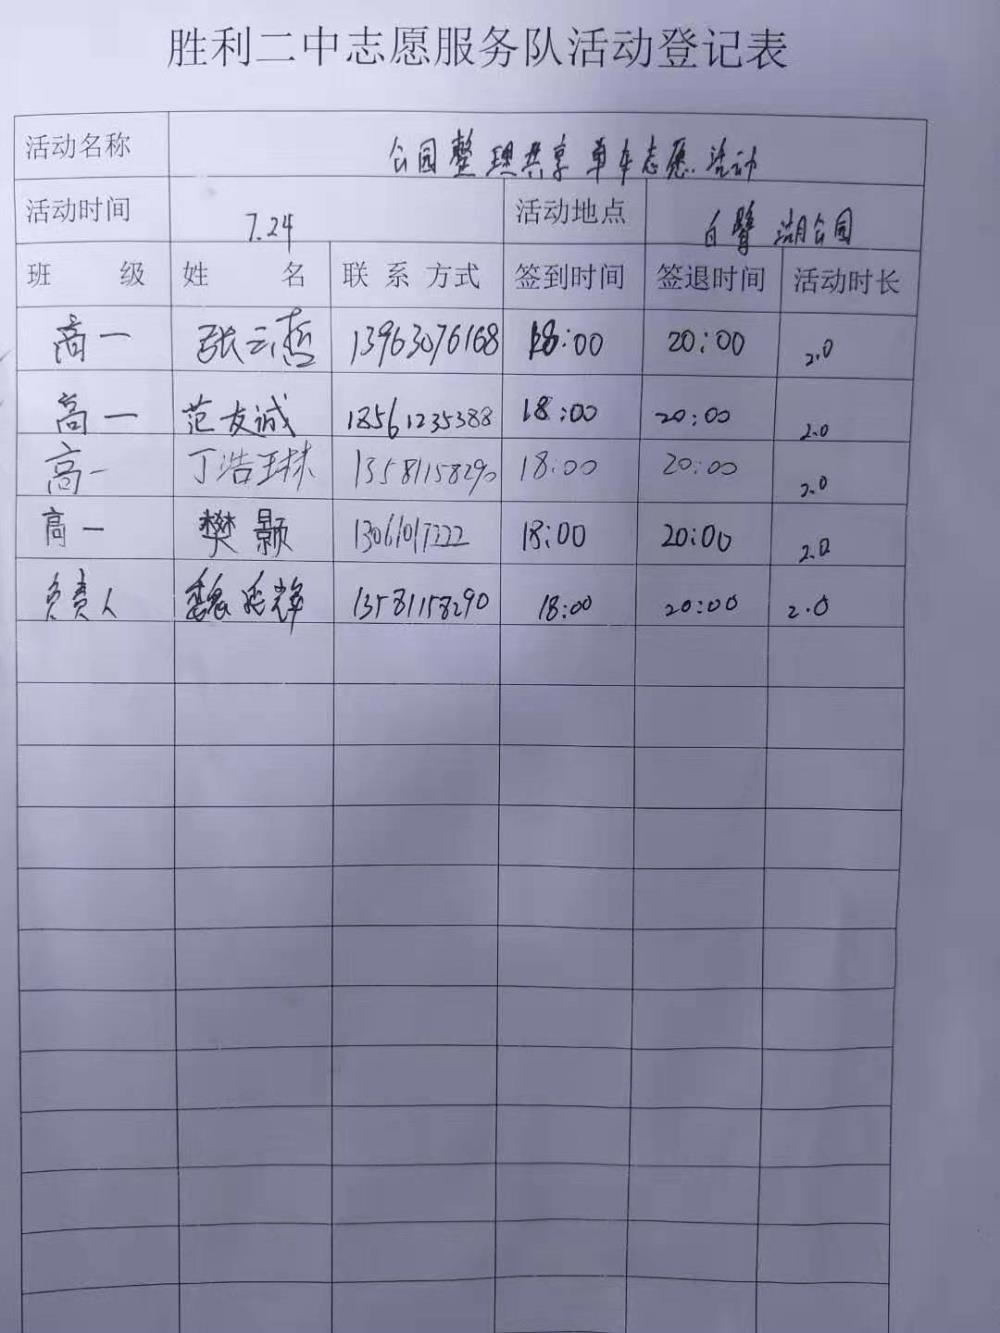 胜利二中志愿服务队活动登记表
活动名称 公园整理共享单车志愿活动
活动时间 7.24 活动地点 白鹭湖公园
班 级 姓 名 联 系 方式 签到时间 签退时间 活动时长
高一 张云哲 13963076168 18:00 20:00 2.0
高一 范友诚 18561235388 18:00 20:00 2.0
高一 丁浩琳 13581158290 18:00 20:00 2.0
高一 樊颢 13061017222 18:00 20:00 2.0
负责人 魏 13581158290 18:00 20:00 2.0